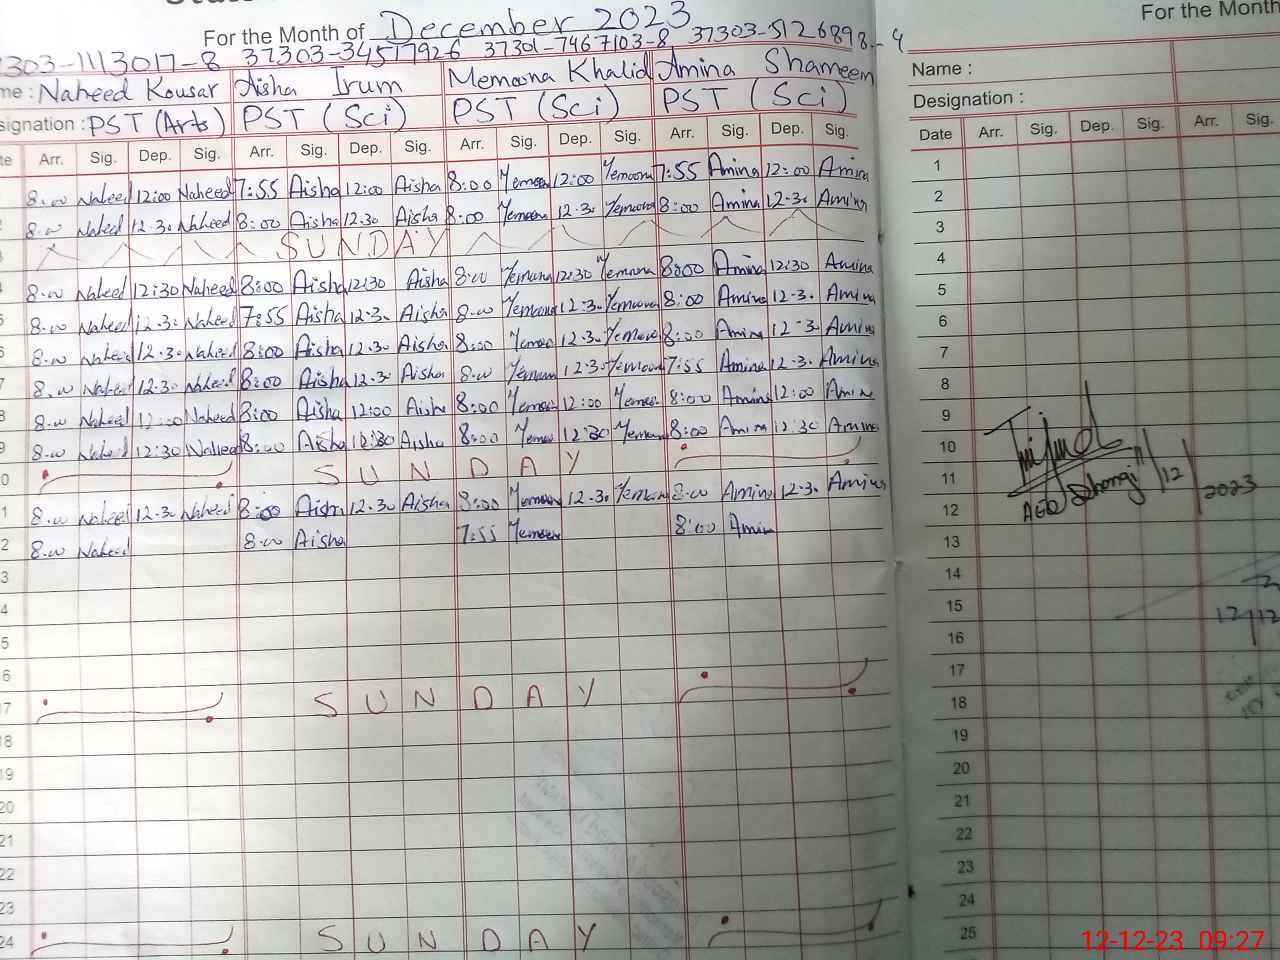 For the Month of December 2023
303-1113017-8 37303-34517926 37301-7467103-8 37303-5126898-4
me : Naheed Kousar Aisha Irum Memoona Khalid Amina Shameem
signation : PST (Arts) PST (Sci) PST (Sci) PST (Sci)
te Arr. Sig. Dep. Sig. Arr. Sig. Dep. Sig. Arr. Sig. Dep. Sig. Arr. Sig. Dep. Sig.
8.00 Naheed 12:00 Naheed 7:55 Aisha 12:00 Aisha 8:00 Memoona 12:00 Memoona 7:55 Amina 12:00 Amina
8.00 Naheed 12.30 Naheed 8:00 Aisha 12.30 Aisha 8:00 Memoona 12.30 Memoona 8:00 Amina 12.30 Amina
SUNDAY
8.00 Naheed 12:30 Naheed 8:00 Aisha 12:30 Aisha 8.00 Memoona 12:30 Memoona 8:00 Amina 12:30 Amina
5 8.00 Naheed 12.30 Naheed 7:55 Aisha 12.30 Aisha 8.00 Memoona 12.30 Memoona 8:00 Amina 12.30 Amina
6 8.00 Naheed 12.30 Naheed 8:00 Aisha 12.30 Aisha 8:00 Memoona 12.30 Memoona 8:00 Amina 12.30 Amina
7 8.00 Naheed 12.30 Naheed 8:00 Aisha 12.30 Aisha 8.00 Memoona 12.30 Memoona 7:55 Amina 12.30 Amina
8 8.00 Naheed 12:00 Naheed 8:00 Aisha 12:00 Aisha 8:00 Memoona 12:00 Memoona 8:00 Amina 12:00 Amina
9 8.00 Naheed 12:30 Naheed 8:00 Aisha 12:30 Aisha 8:00 Memoona 12:30 Memoona 8:00 Amina 12:30 Amina
0 SUNDAY
1 8.00 Naheed 12.30 Naheed 8:00 Aisha 12.30 Aisha 8:00 Memoona 12.30 Memoona 8.00 Amina 12.30 Amina
2 8.00 Naheed 8.00 Aisha 7:55 Memoona 8:00 Amina
3
4
5
6
7 SUNDAY
18
19
20
21
22
23
24 SUNDAY
For the Month
Name :
Designation :
Date Arr. Sig. Dep. Sig. Arr. Sig.
1
2
3
4
5
6
7
8
9
10
11
12
AEO 11/12/2023
13
14
15
12/12
16
17
18
19
20
21
22
23
24
25
12-12-23 09:27